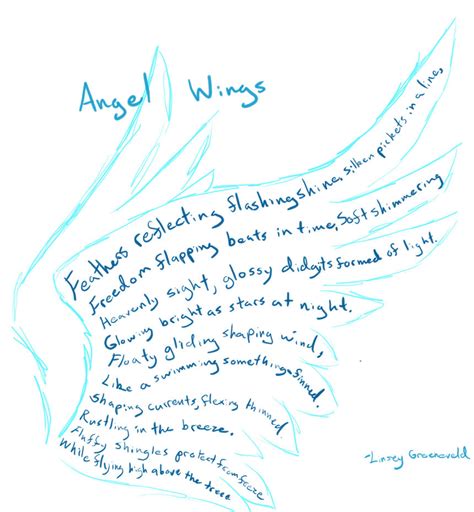 Angel Wings
Feathers reflecting flashing shine, silken pickets in a line,
Freedom flapping beats in time, Soft shimmering
Heavenly sight, glossy didgits formed of light.
Glowing bright as stars at night.
Floaty gliding shaping wind,
Like a swimming something-finned.
Shaping currents, flexing thinned
Rustling in the breeze.
Fluffy shingles protect from freeze
While flying high above the trees
-Linsey